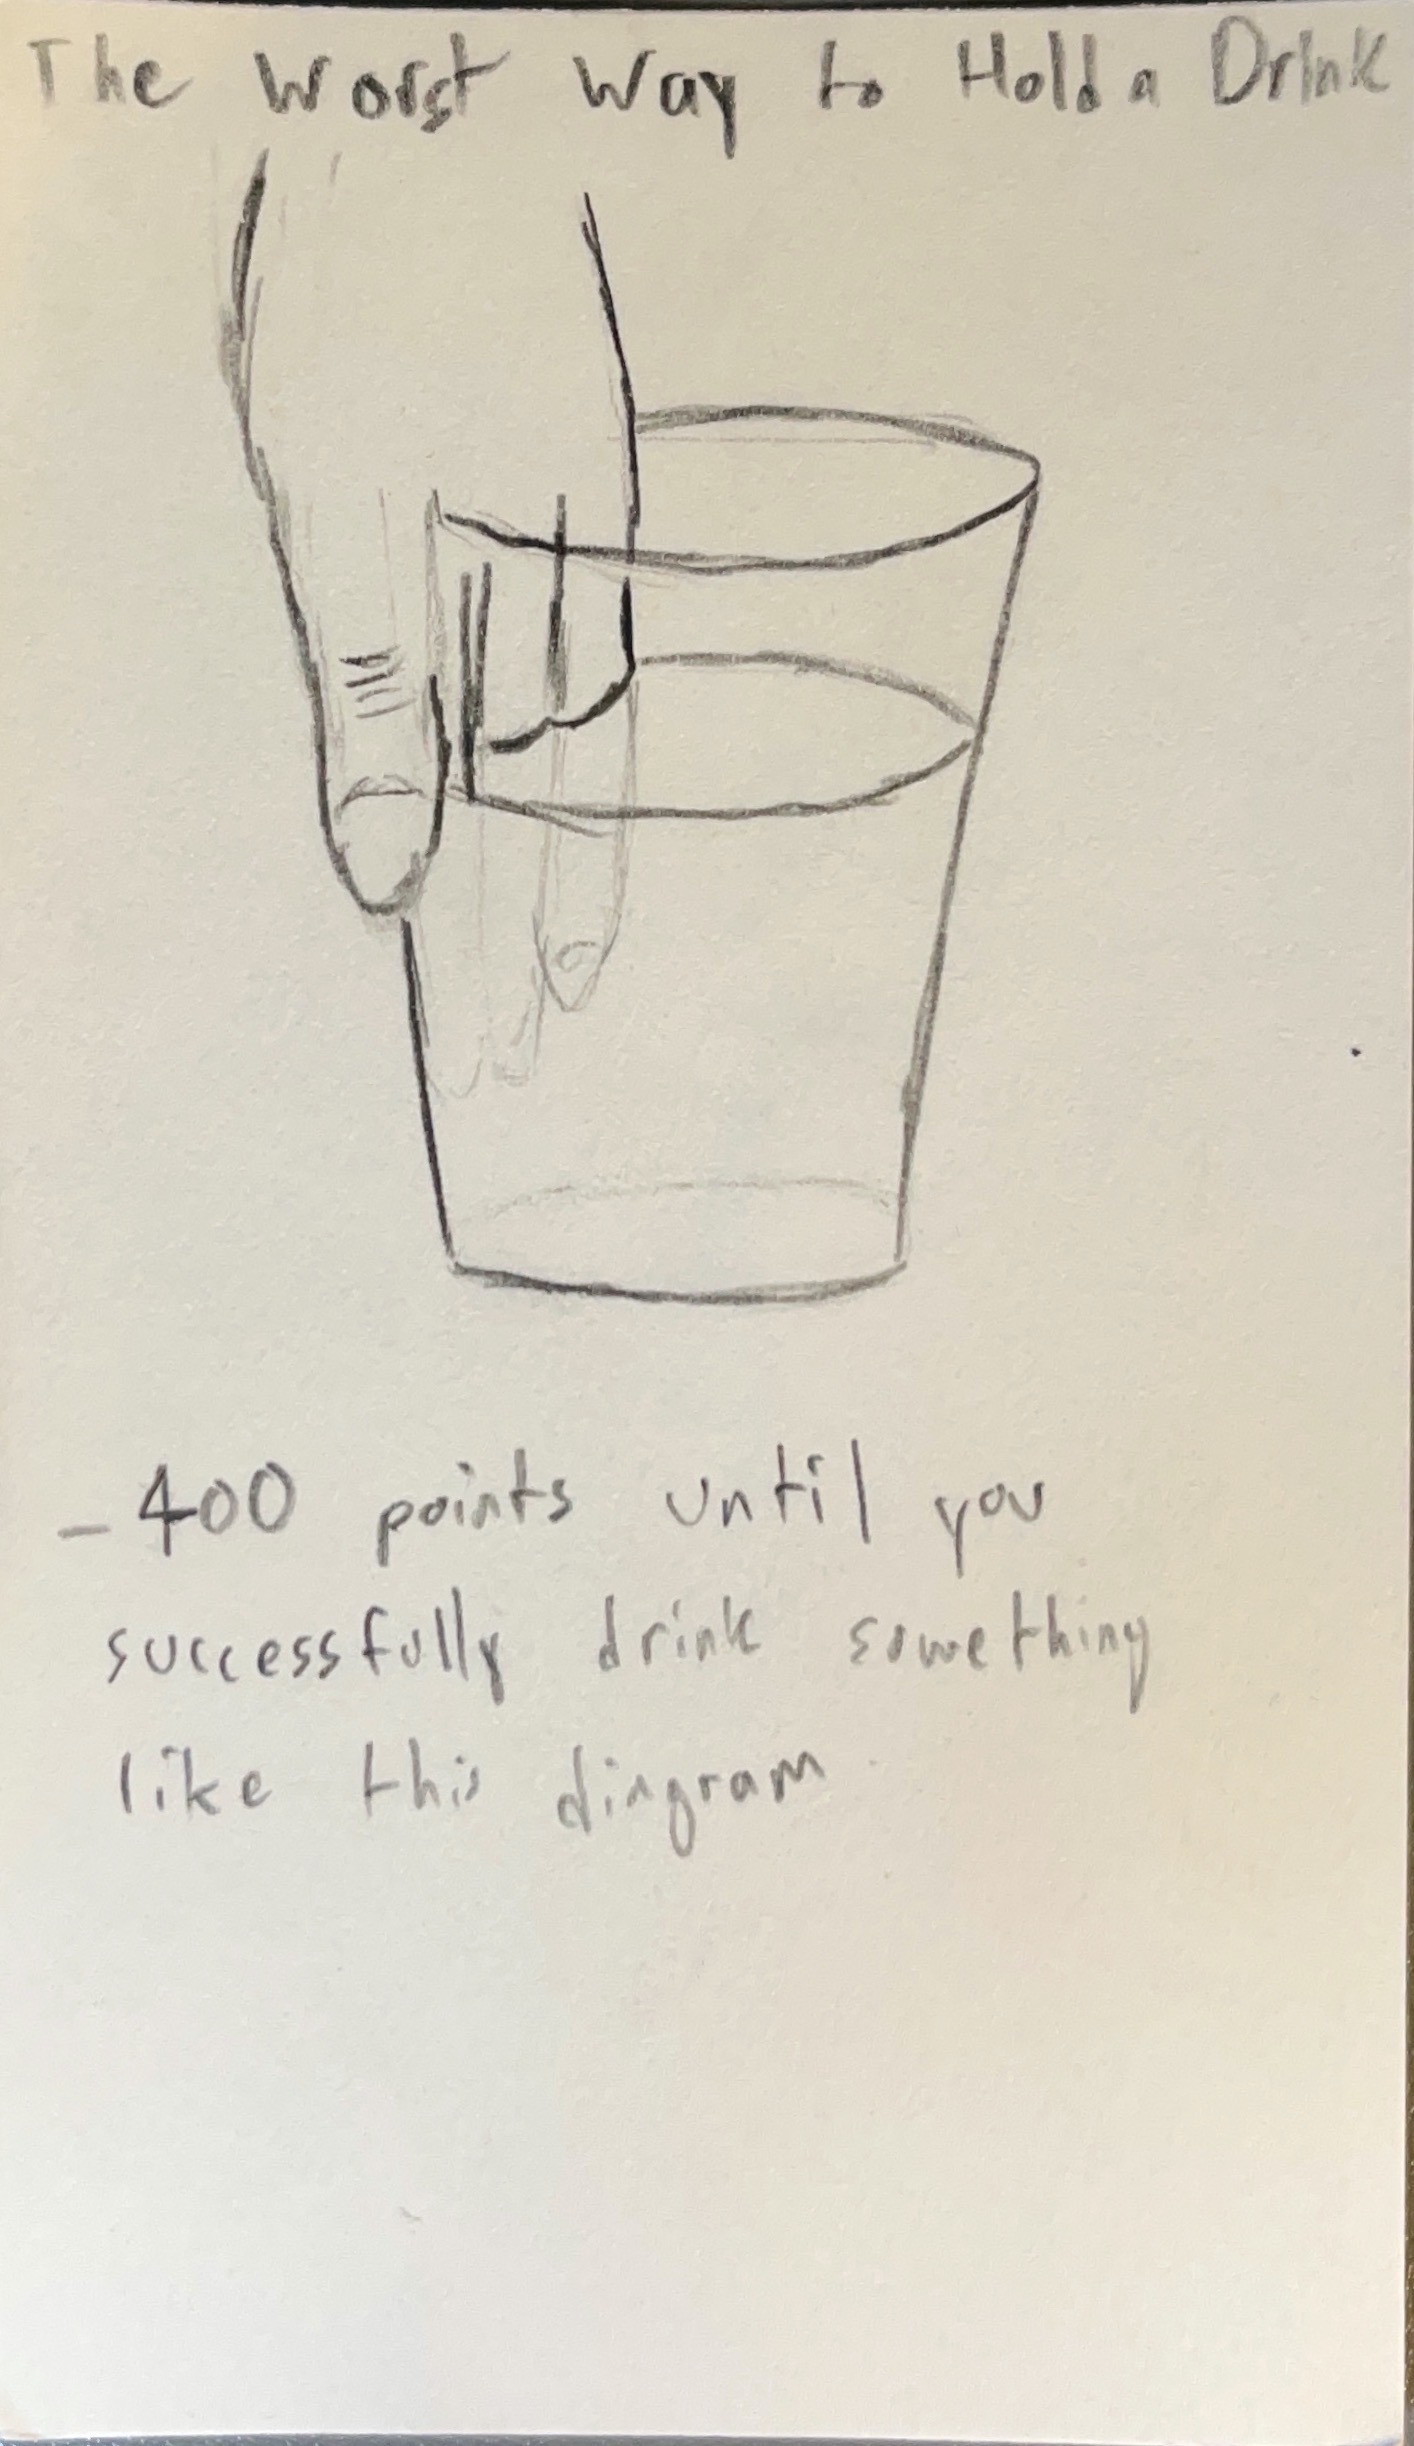 The Worst Way to Hold a Drink
-400 points until you
successfully drink something
like this diagram